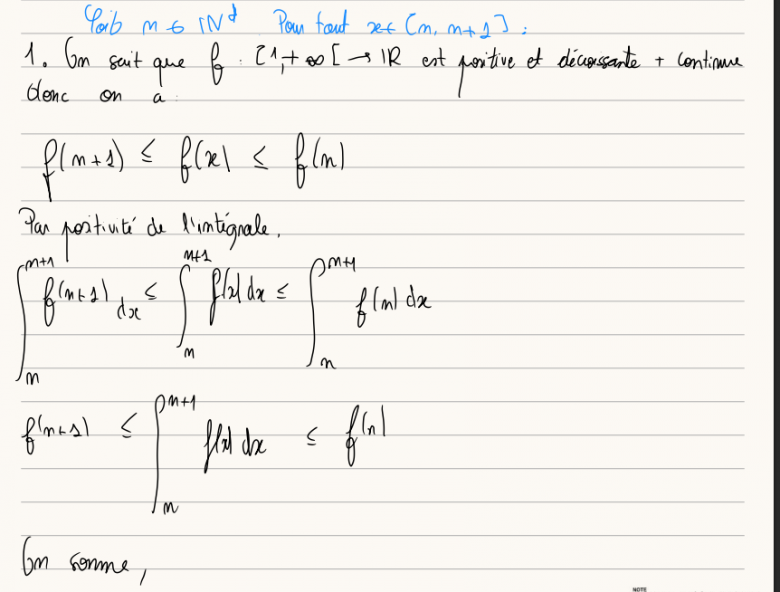 Soit n ∈ ℕ* Pour tout x ∈ [n, n+1] :
1. On sait que f : [1, +∞[ → ℝ est positive et décroissante + continue
donc on a :
f(n+1) ≤ f(x) ≤ f(n)
Par positivité de l'intégrale,
∫_n^{n+1} f(n+1) dx ≤ ∫_n^{n+1} f(x) dx ≤ ∫_n^{n+1} f(n) dx
f(n+1) ≤ ∫_n^{n+1} f(x) dx ≤ f(n)
On somme,
NOTE